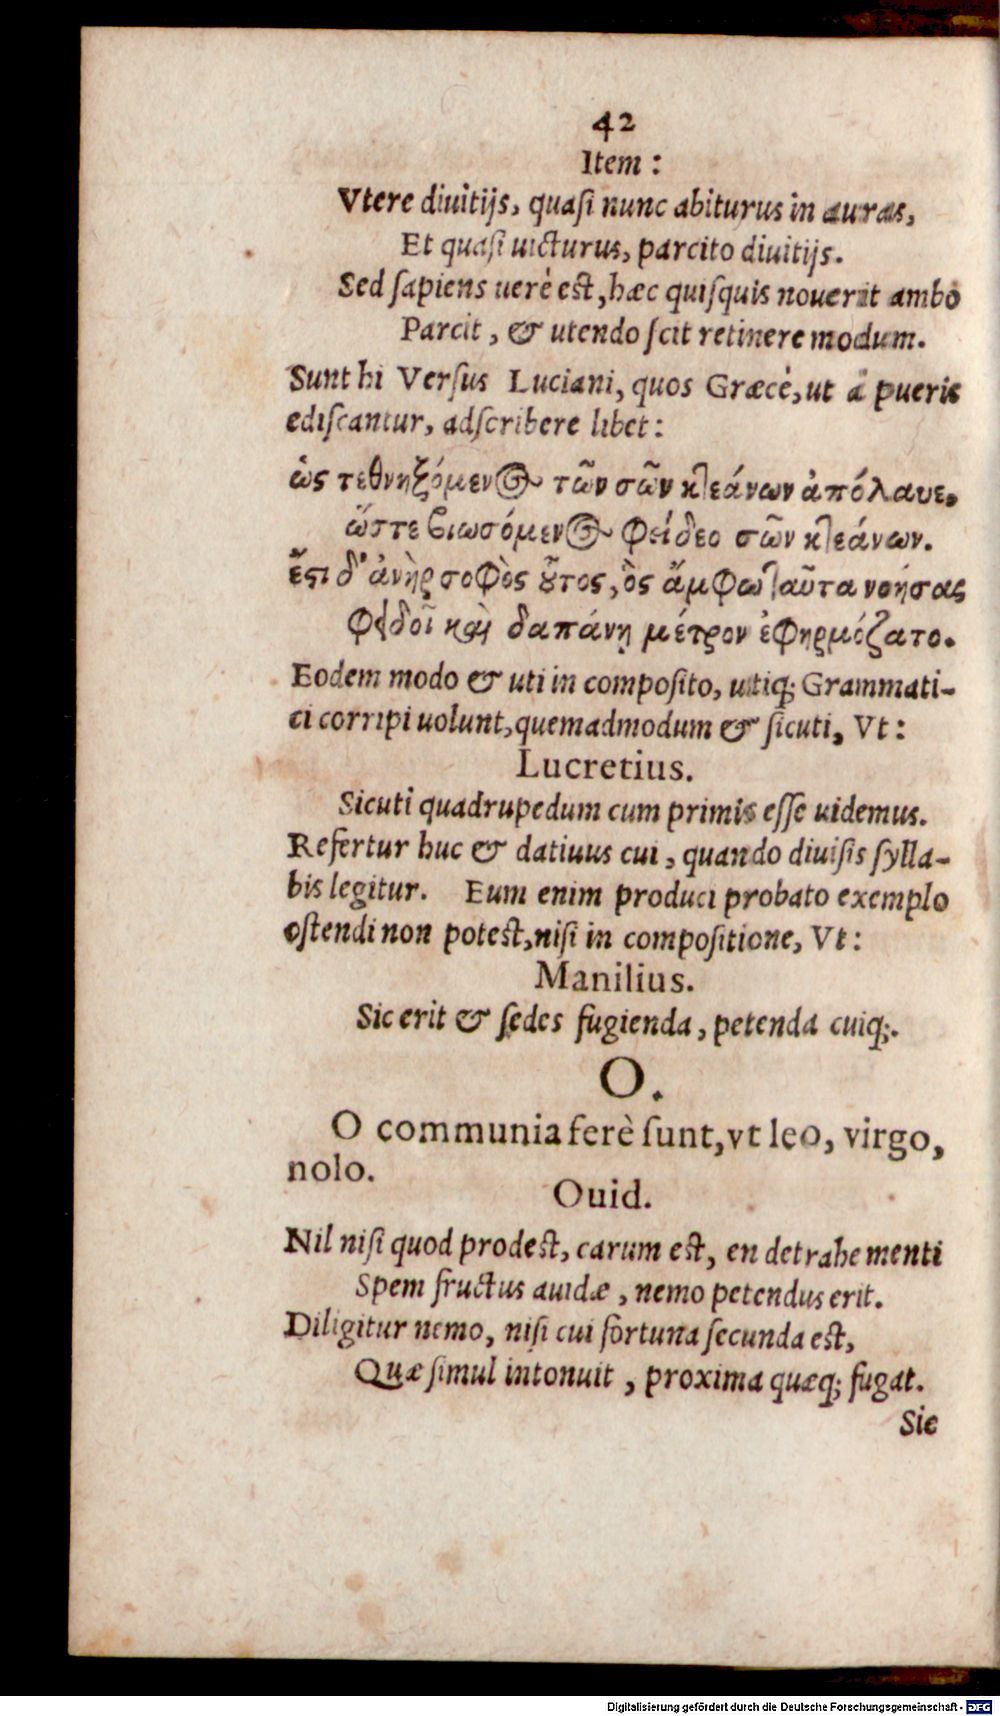 42
Item :
Vtere diuitijs, quasi nunc abiturus in auras,
Et quasi uicturus, parcito diuitijs.
Sed sapiens uerè est, hæc quisquis nouerit ambo
Parcit, & utendo scit retinere modum.
Sunt hi Versus Luciani, quos Græcè, ut à pueris
ediscantur, adscribere libet:
ὡς τεθνηξόμενος τῶν σῶν κτεάνων ἀπόλαυε,
ὥστε βιωσόμενος φείδεο σῶν κτεάνων.
ἔστι δ' ἀνὴρ σοφὸς οὗτος, ὃς ἄμφω ταῦτα νοήσας
Φειδοῖ καὶ δαπάνῃ μέτρον ἐφηρμόζατο.
Eodem modo & uti in composito, utiq; Grammati-
ci corripi uolunt, quemadmodum & sicuti, Vt:
Lucretius.
Sicuti quadrupedum cum primis esse uidemus.
Refertur huc & datiuus cui, quando diuisis sylla-
bis legitur. Eum enim produci probato exemplo
ostendi non potest, nisi in compositione, Vt:
Manilius.
Sic erit & sedes fugienda, petenda cuiq;.
O.
O communia ferè sunt, vt leo, virgo,
nolo.
Ouid.
Nil nisi quod prodest, carum est, en detrahe menti
Spem fructus auidæ, nemo petendus erit.
Diligitur nemo, nisi cui fortuna secunda est,
Quæ simul intonuit, proxima quæq; fugat.
Sic
Digitalisierung gefördert durch die Deutsche Forschungsgemeinschaft - DFG